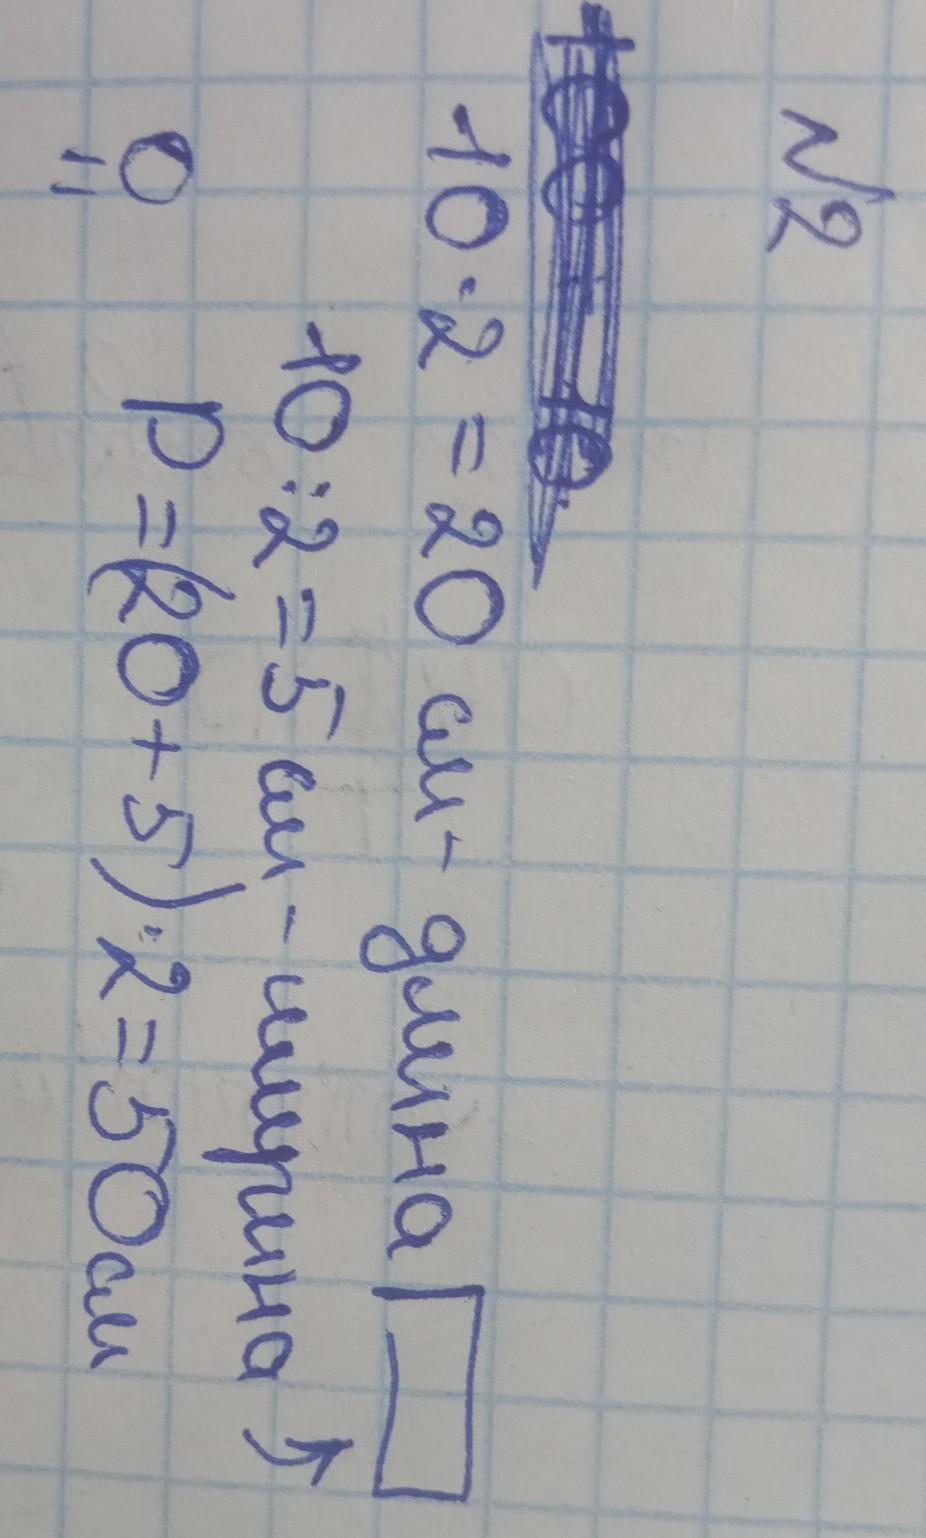 №2
10·2=20 см - длина
10:2=5 см - ширина
P=(20+5)·2=50 см
O